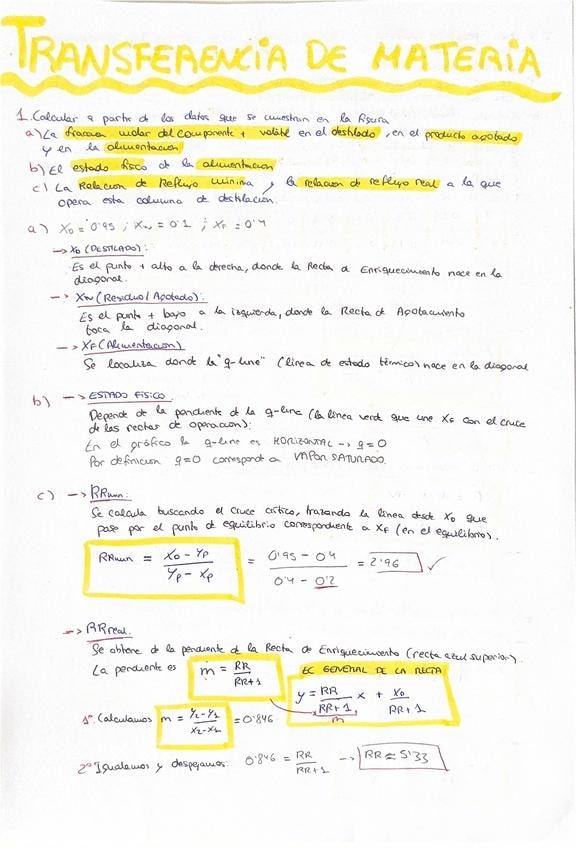 TRANSFERENCIA DE MATERIA
1. Calcular a partir de los datos que se muestran en la figura
a) La fraccion molar del componente + volátil en el destilado, en el producto agotado
y en la alimentacion
b) El estado fisico de la alimentacion
c) La Relacion de Reflujo minima y la relacion de reflujo real a la que
opera esta columna de destilacion.
a) XD = 0'95 ; XW = 0'1 ; XF = 0'4
→ XD (DESTILADO):
Es el punto + alto a la derecha, donde la Recta de Enriquecimiento nace en la
diagonal.
→ XW (Residuo/Agotado):
Es el punto + bajo a la izquierda, donde la Recta de Agotamiento
toca la diagonal.
→ XF (Alimentación)
Se localiza donde la "q-line" (linea de estado térmico) nace en la diagonal
b) → ESTADO FISICO
Depende de la pendiente de la q-line (la linea verde que une XF con el cruce
de las rectas de operacion):
En el gráfico la q-line es HORIZONTAL → q = 0
Por definicion q=0 corresponde a VAPOR SATURADO.
c) → RRmin:
Se calcula buscando el cruce crítico, trazando la linea desde XD que
pase por el punto de equilibrio correspondiente a XF (en el equilibrio).
RRmin = XD - YP / YP - XP = 0'95 - 0'4 / 0'4 - 0'2 = 2'96 ✓
→ RR real.
Se obtiene de la pendiente de la Recta de Enriquecimiento (recta azul superior).
La pendiente es m = RR / RR+1 EC GENERAL DE LA RECTA
y = RR / RR+1 x + XD / RR+1
m
1º Calculamos m = Y2-Y1 / X2-X1 = 0'846
2º Igualamos y despejamos: 0'846 = RR / RR+1 → RR ≈ 5'33